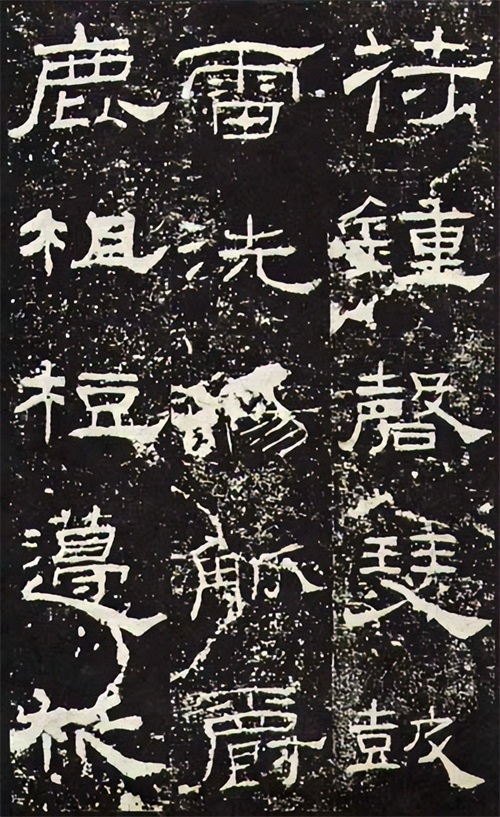 苻鍾磬瑟鼓
雷洗觴觚爵
鹿柤梪籩柉